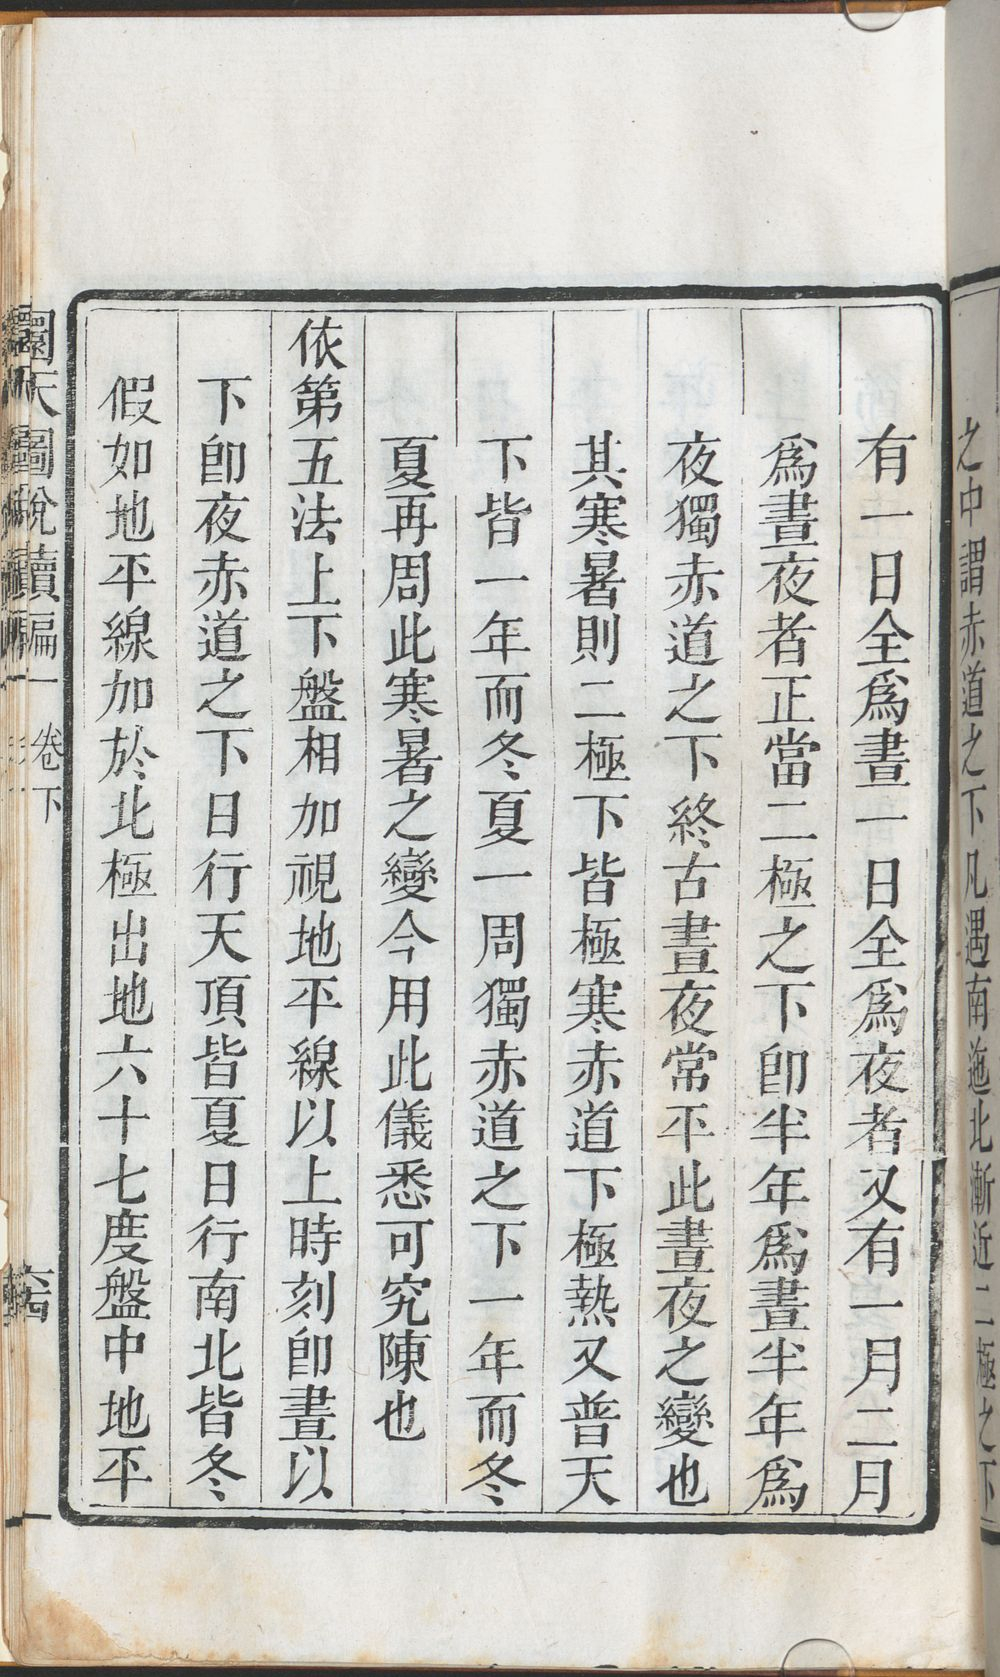 之中謂赤道之下凡遇南迤北漸近二極之下
有一日全爲晝一日全爲夜者又有一月二月
爲晝夜者正當二極之下卽半年爲晝半年爲
夜獨赤道之下終古晝夜常平此晝夜之變也
其寒暑則二極下皆極寒赤道下極熱又普天
下皆一年而冬夏一周獨赤道之下一年而冬
夏再周此寒暑之變今用此儀悉可究陳也
依第五法上下盤相加視地平線以上時刻卽晝以
下卽夜赤道之下日行天頂皆夏日行南北皆冬
假如地平線加於北極出地六十七度盤中地平
圜天圖說續編 卷下